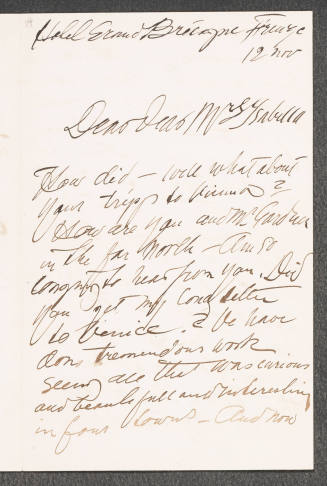 Hotel Grand Bretagne Firenze
12 Nov
Dear Dear Mrs Isabella
How did – well what about
your tripp to Vienna?
How are you and Mr Gardner
in the far North – Am so
longing to hear from you. Did
you get my long letter
to Venice? We have
done tremendous work
seeing all that was curious
and beautifull and interesting
in four towns – And now